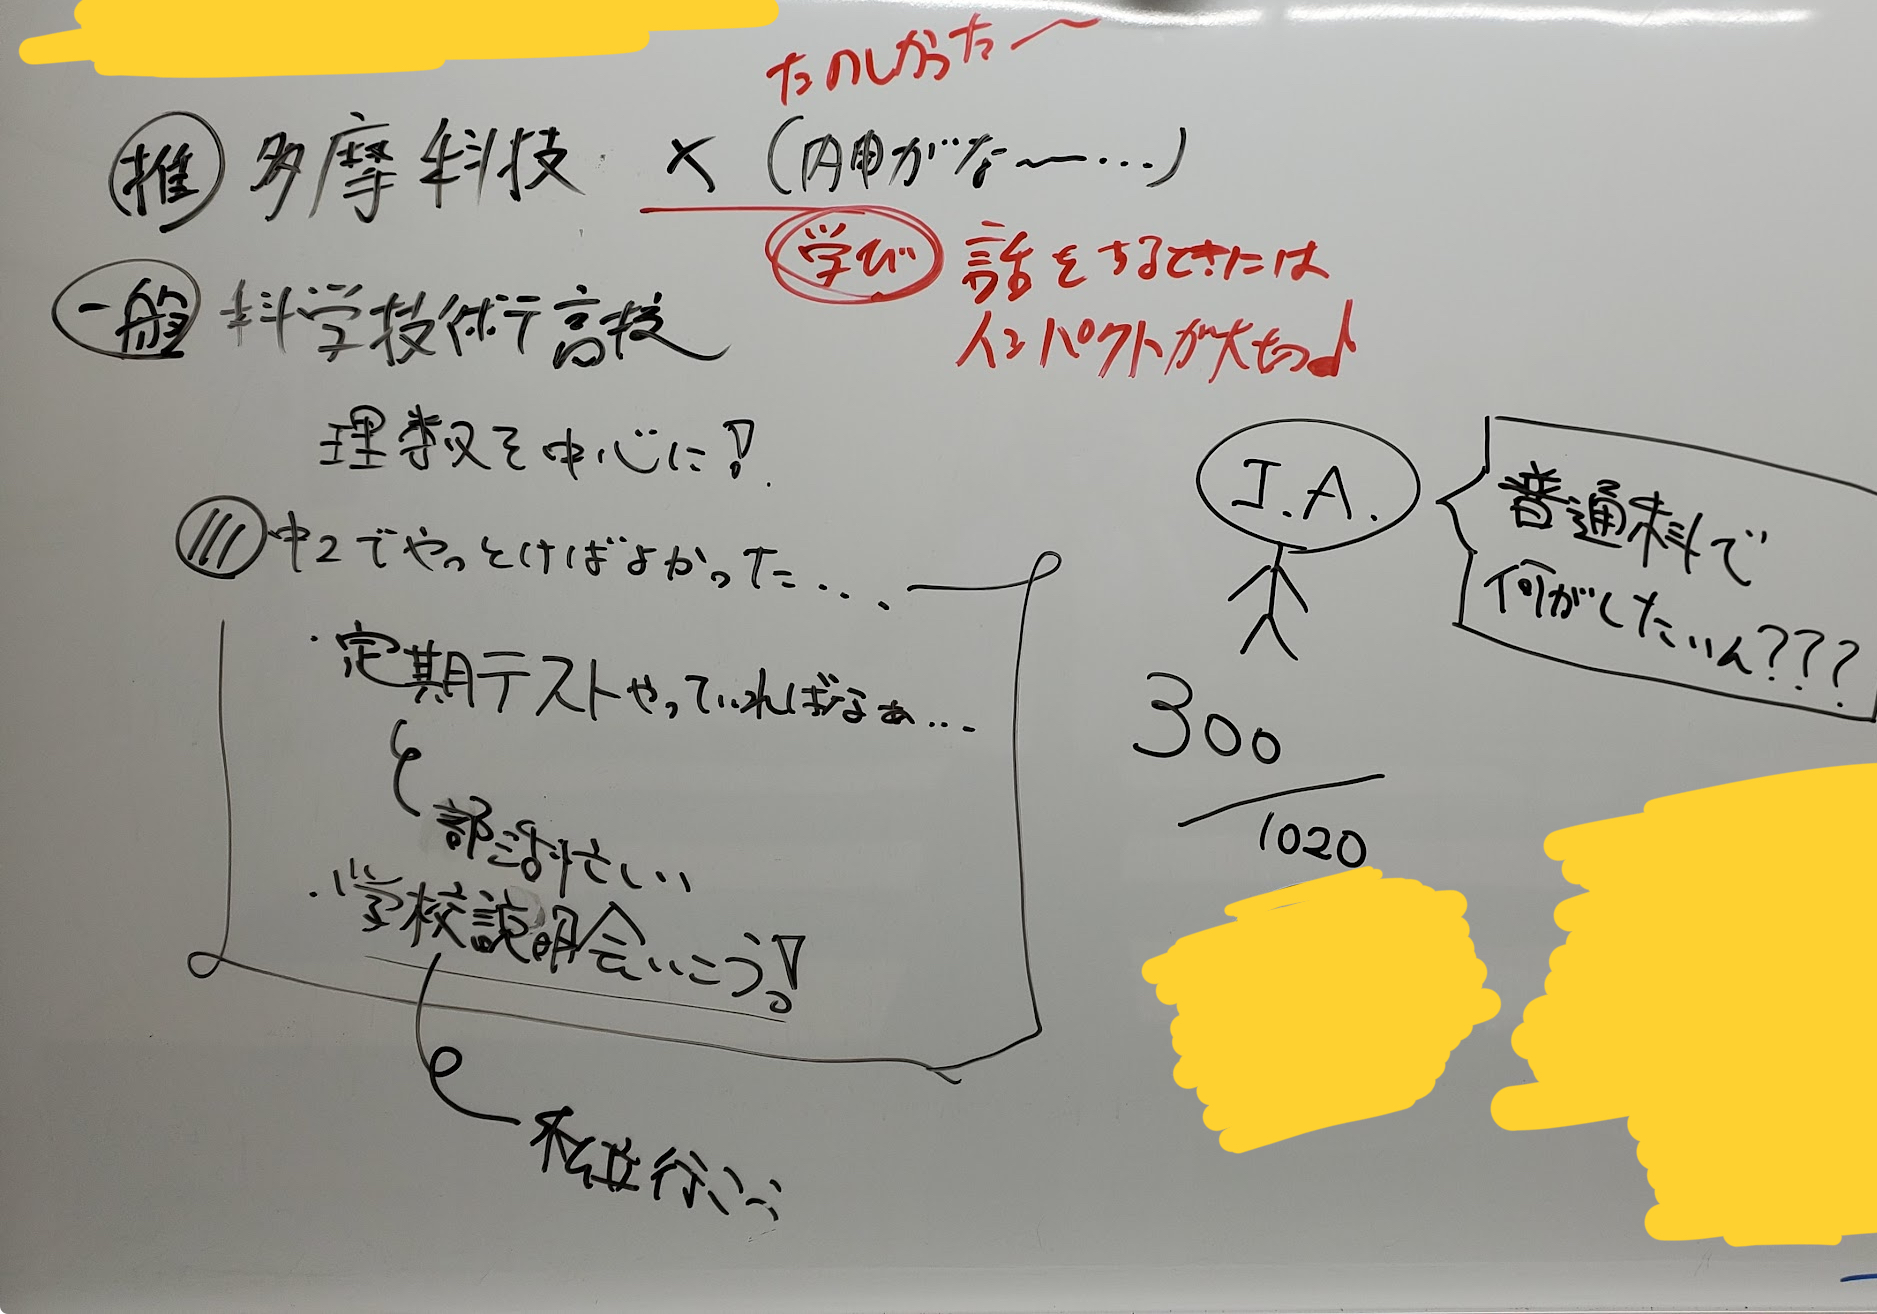 たのしかった〜
推 多摩科技 × (内申がな〜…)
学び 話をするときには
インパクトが大切♪
一般 科学技術高校
理数を中心に!
中2でやっとけばよかった...
・定期テストやっていればなぁ...
部活忙しい
・学校説明会いこう!
私立行こう
I.A.
普通科で
何がしたいん???
300
1020